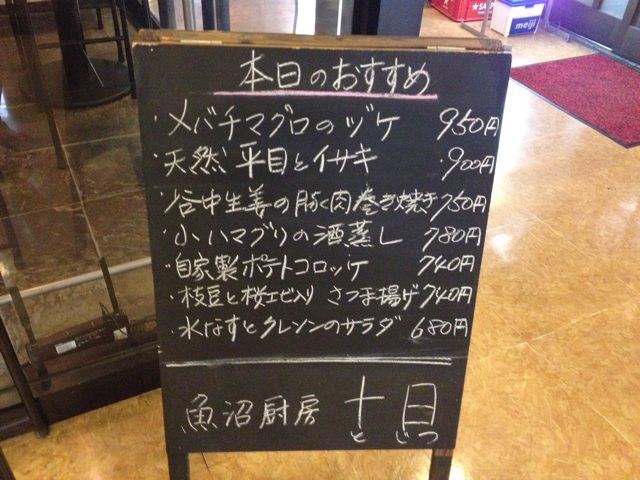 本日のおすすめ
・メバチマグロのヅケ 950円
・天然 平目とイサキ ・900円
・谷中生姜の豚肉巻き焼き 750円
・小ハマグリの酒蒸し 780円
・自家製ポテトコロッケ 740円
・枝豆と桜エビ入り さつま揚げ 740円
・水なすとクレソンのサラダ 680円
魚沼厨房 十日
と じつ
meiji